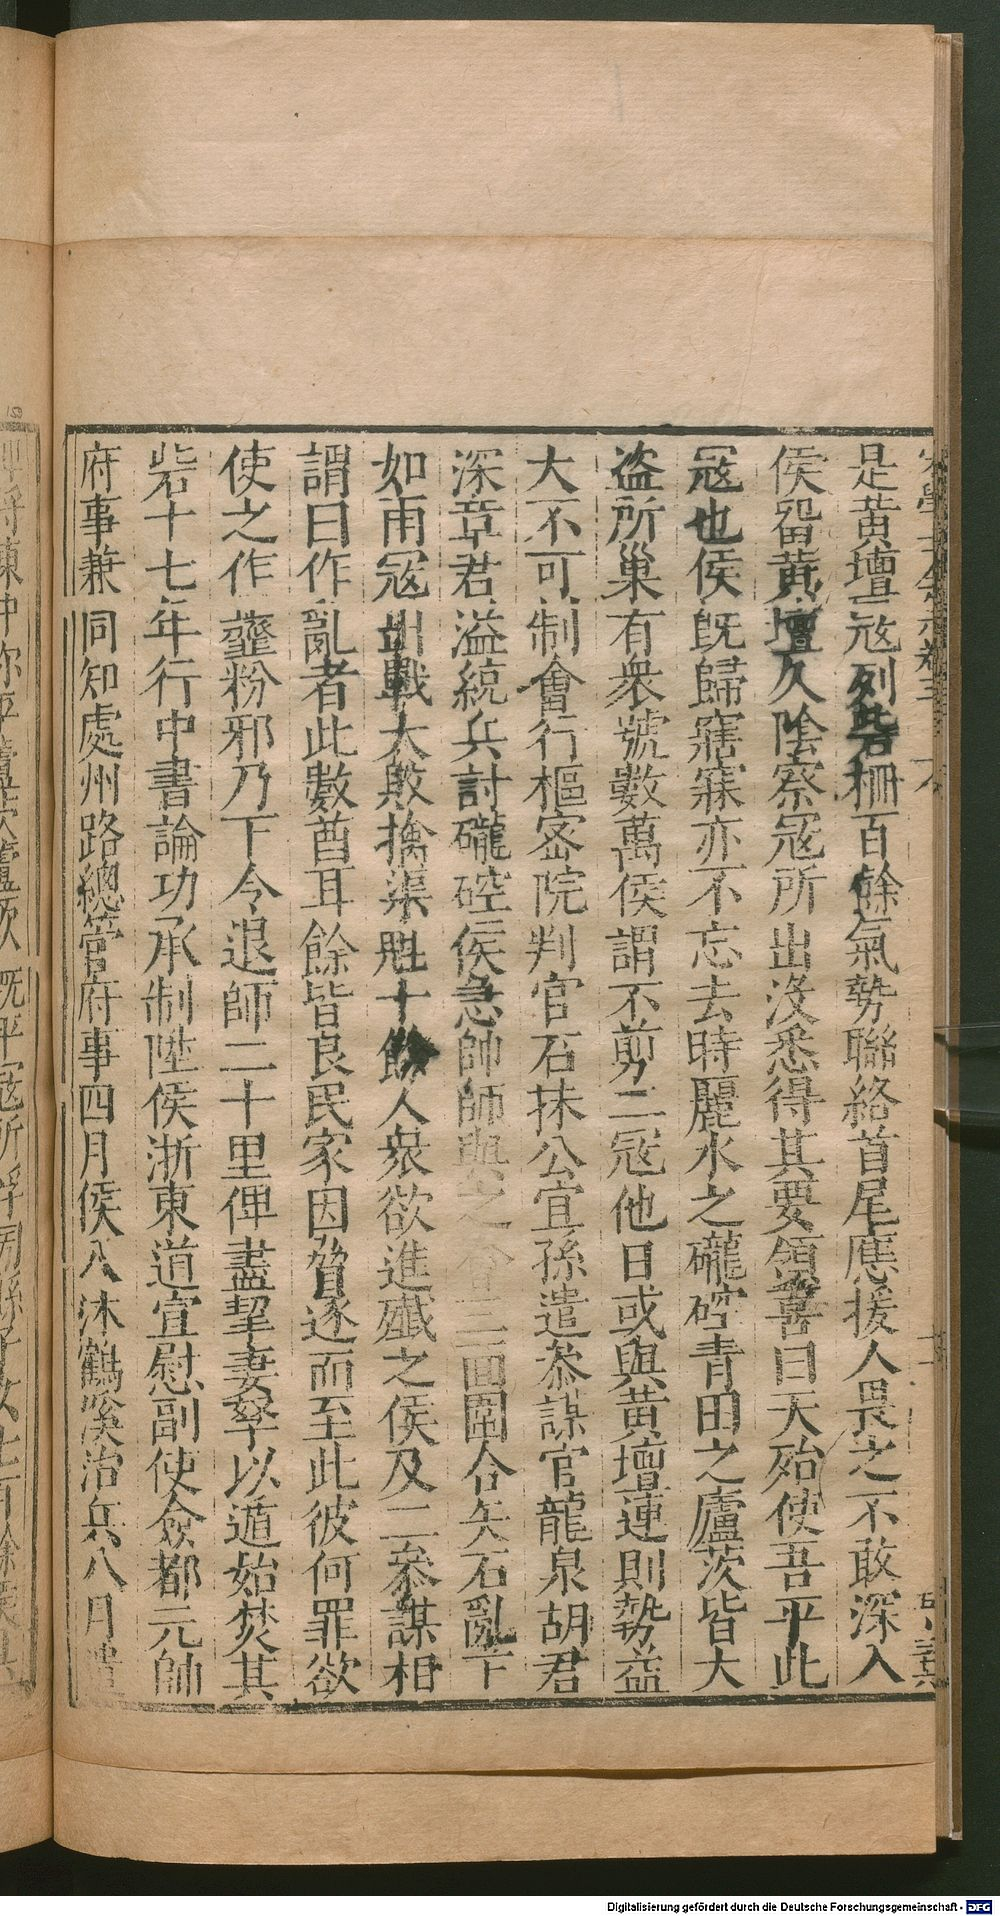 是黃壇寇列砦柵百餘氣勢聯絡首尾應援人畏之不敢深入
侯留黃壇久陰察寇所出沒悉得其要領喜曰天殆使吾平此
寇也侯旣歸寤寐亦不忘去時麗水之礲硿青田之廬茨皆大
盜所巢有衆號數萬侯謂不剪二寇他日或與黃壇連則勢益
大不可制會行樞密院判官石抹公宜孫遣叅謀官龍泉胡君
深章君溢統兵討礲硿侯急帥師與之會三面圍合矢石亂下
如雨寇出戰大敗擒渠魁十餘人衆欲進殲之侯及二叅謀相
謂曰作亂者此數酋耳餘皆良民家因脅逐而至此彼何罪欲
使之作虀粉邪乃下令退師二十里俾盡挈妻孥以遁始焚其
砦十七年行中書論功承制陞侯浙東道宣慰副使僉都元帥
府事兼同知處州路總管府事四月侯入沐鶴溪治兵八月遣
Digitalisierung gefördert durch die Deutsche Forschungsgemeinschaft - DFG